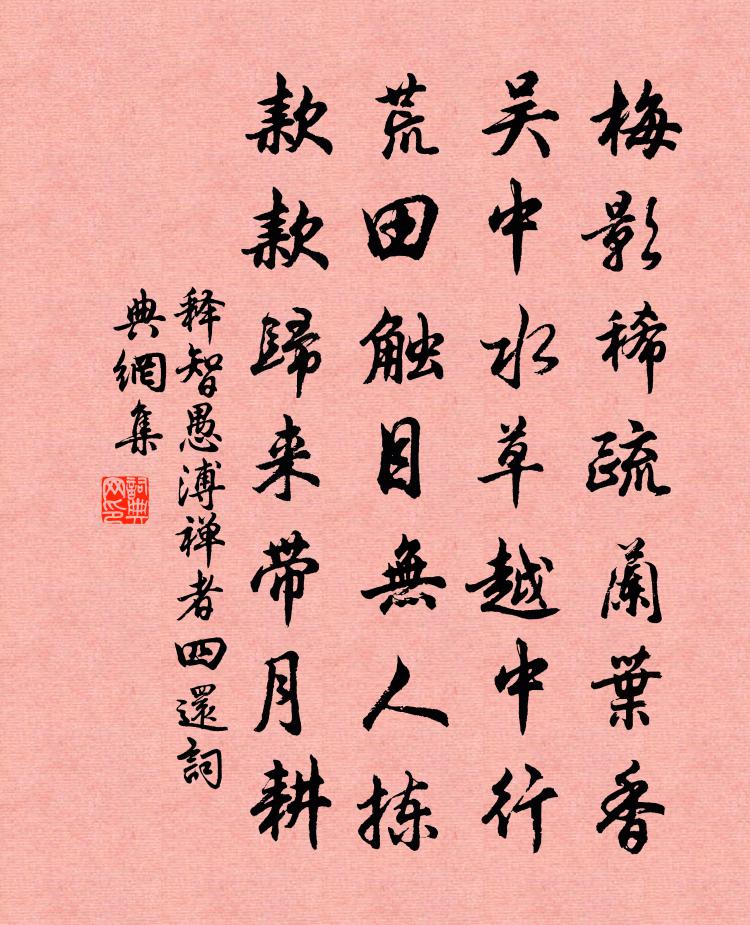 梅影稀疏蘭葉香
吴中水草越中行
荒田触目無人拣
款款歸来带月耕
释智愚溥禅者四還詞
典網集
詞典網印